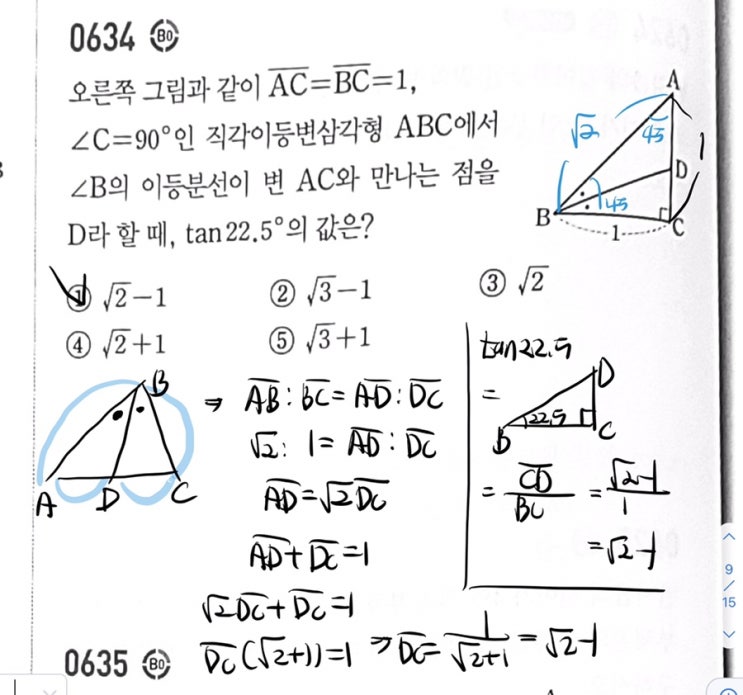 0634 BO
오른쪽 그림과 같이 AC=BC=1,
∠C=90°인 직각이등변삼각형 ABC에서
∠B의 이등분선이 변 AC와 만나는 점을
D라 할 때, tan22.5°의 값은?
A
√2
45
1
D
B
45
C
1
① √2-1
② √3-1
③ √2
④ √2+1
⑤ √3+1
B
A D C
⇒ AB : BC = AD : DC
√2 : 1 = AD : DC
AD = √2DC
AD + DC = 1
√2DC + DC = 1
DC(√2+1) = 1 ⇒ DC = 1/(√2+1) = √2-1
tan22.5
=
D
22.5
B C
= CD/BC = (√2-1)/1
= √2-1
0635 BO
9
/
15